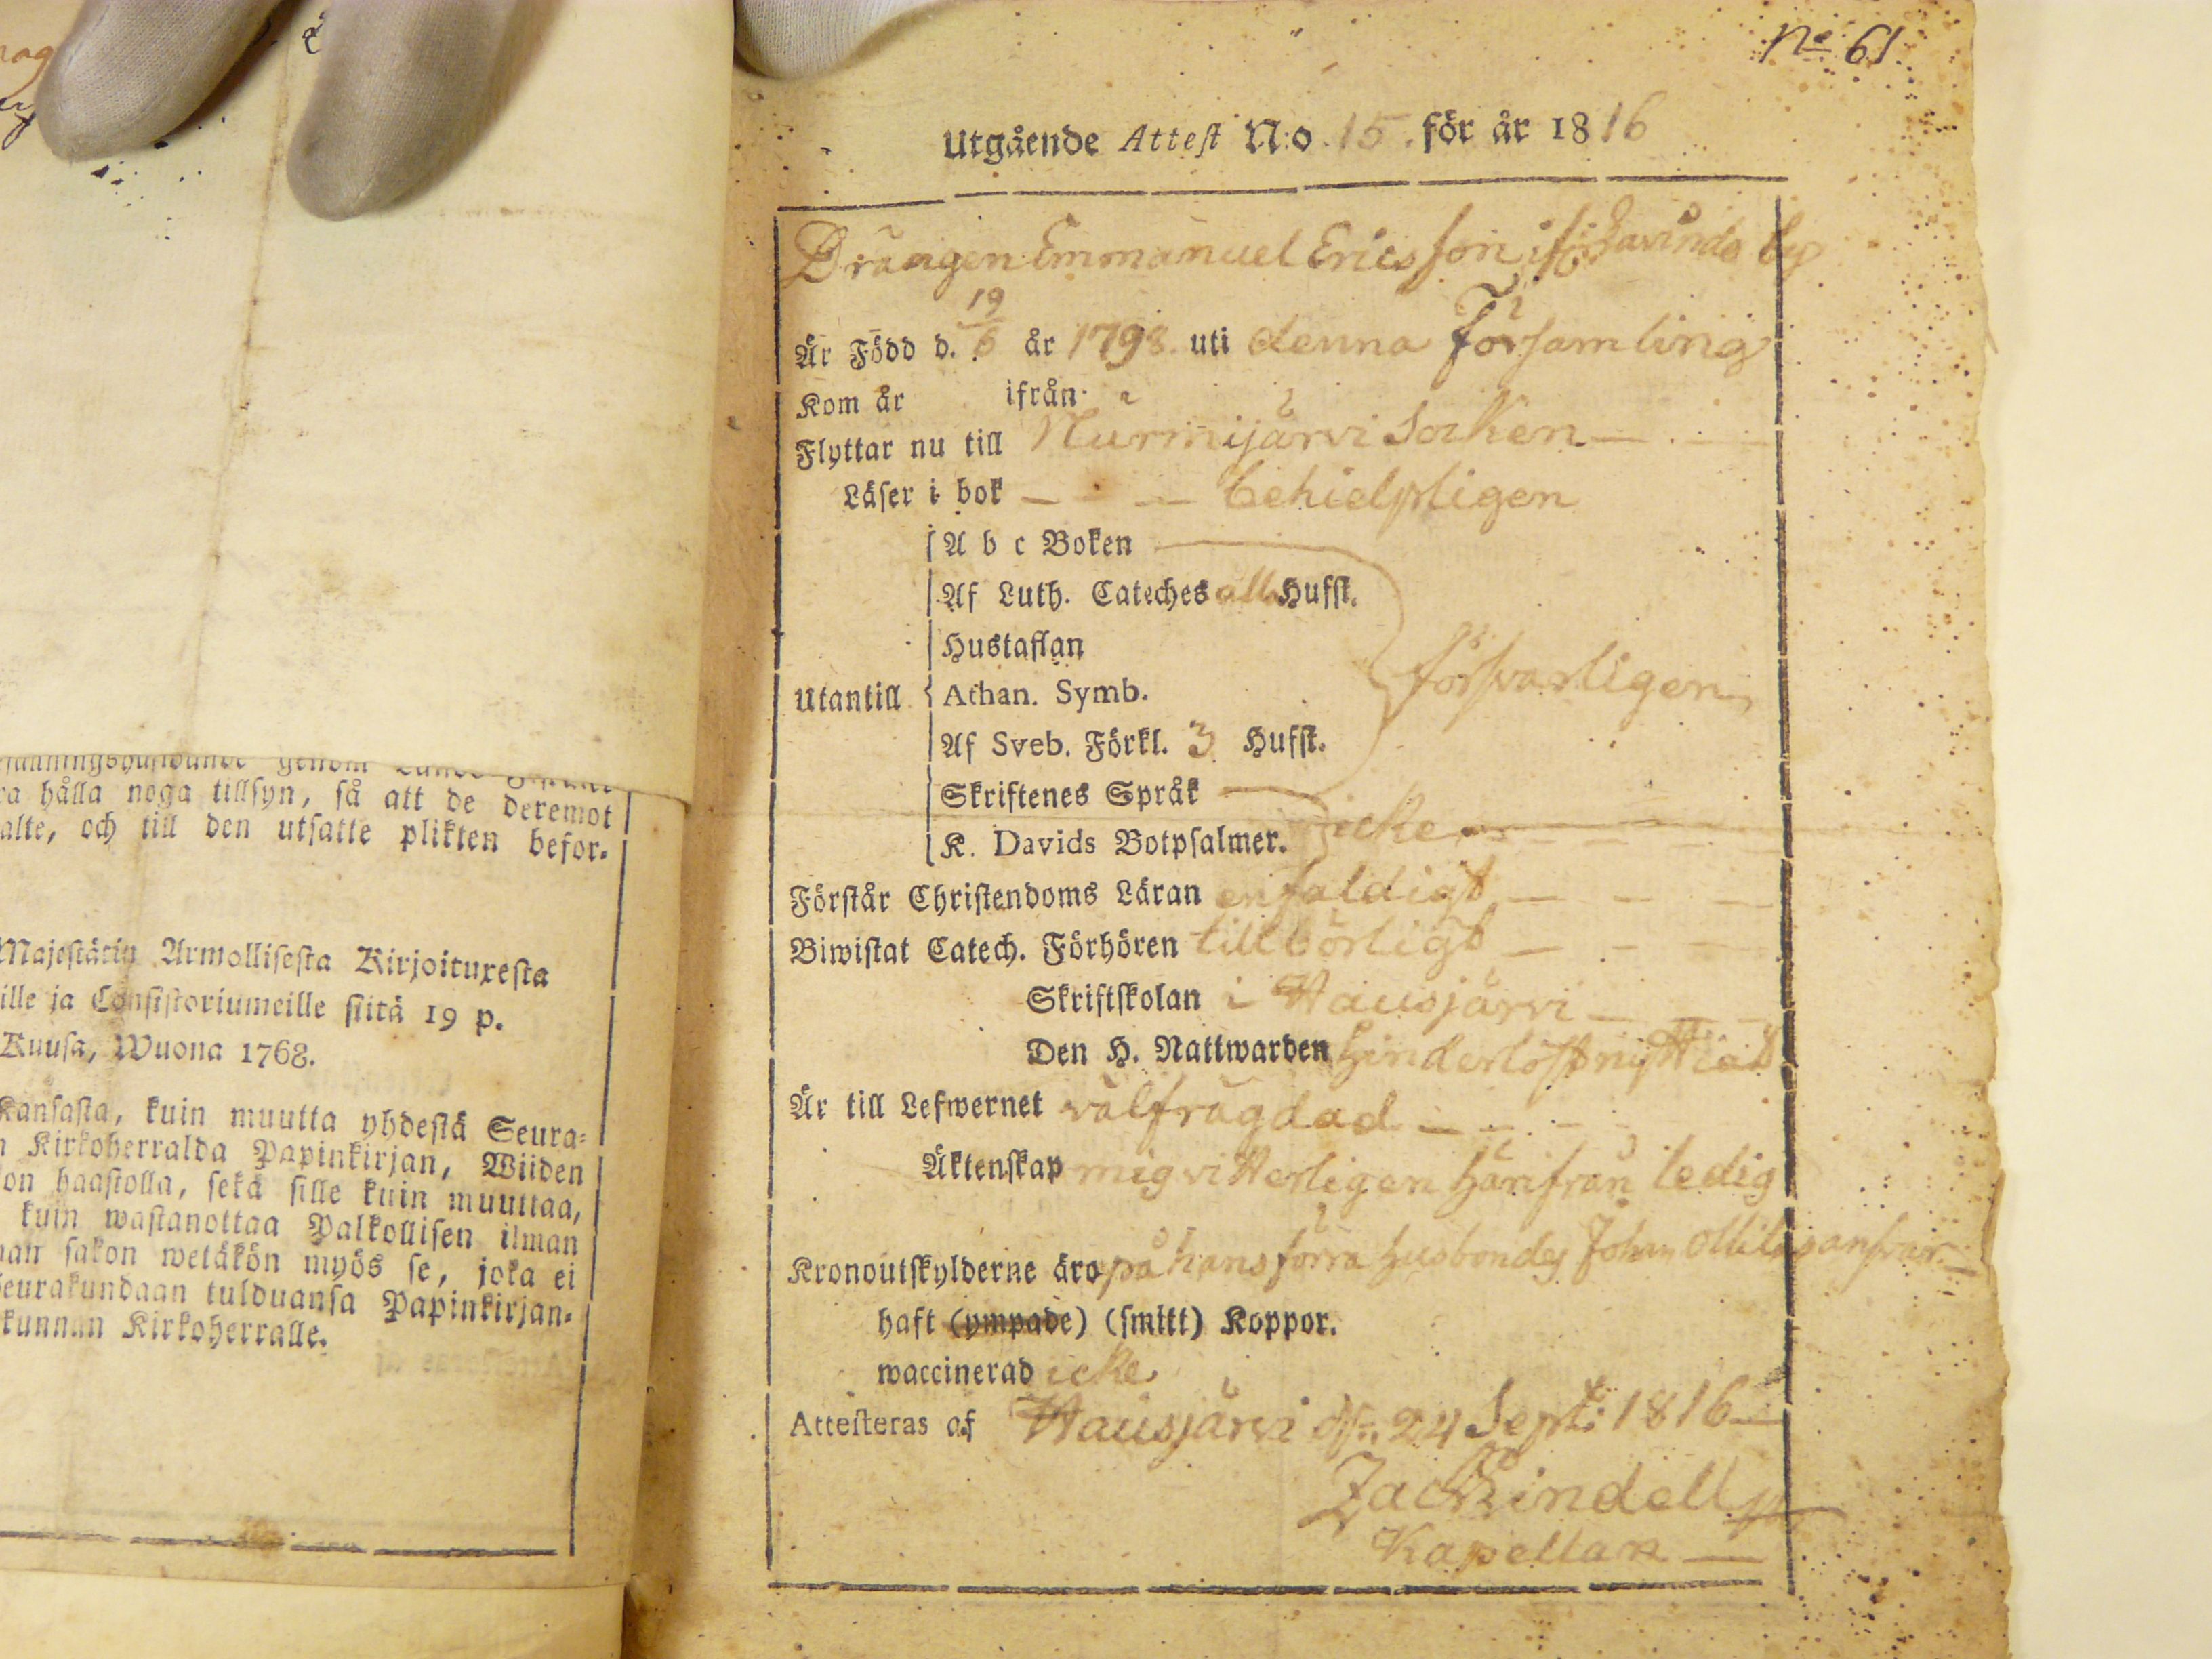 sunningshusbunde genom Lands
ra hålla noga tillsyn, så att de deremot
alte, och till den utsatte plikten befor-
Majestätin Armollisesta Kirjoituxesta
ille ja Consistoriumeille siitä 19 p.
Kuusa, Wuona 1768.
Kansasta, kuin muutta yhdestä Seura-
n Kirkoherralda Papinkirjan, Wiiden
on haastolla, sekä sille kuin muuttaa,
kuin wastanottaa Palkollisen ilman
nan sakon wetäkön myös se, joka ei
seurakundaan tulduansa Papinkirjan-
kunnan Kirkoherralle.
No 61
Utgående Attest N:o 15. för år 1816
Drängen Emmanuel Ericsson ifrån by
Är Född d. 19/6 år 1798 uti denna Församling
Kom år ifrån
Flyttar nu till Nurmijärvi Socken
Läser i bok — — behielpligen
A b c Boken
Af Luth. Cateches alla Hufst.
Hustaflan
Utantill Athan. Symb. försvarligen
Af Sveb. Förkl. 3 Hufst.
Skriftenes Språk
K. Davids Botpsalmer. icke
Förstår Christendoms Läran enfaldigt
Biwistat Catech. Förhören tillbörligt
Skriftskolan i Hausjärvi
Den H. Nattwarden hinderlöst nyttiat
Är till Lefwernet välfrägdad
Äktenskap mig vitterligen härifrån ledig
Kronoutskylderne äro på hans förra husbondes Johan Ollilas ansvar
haft (ympade) (smitt) Koppor.
waccinerad icke
Attesteras af Hausjärvi d. 24 Sept: 1816
Zach Lindell
Kapellan